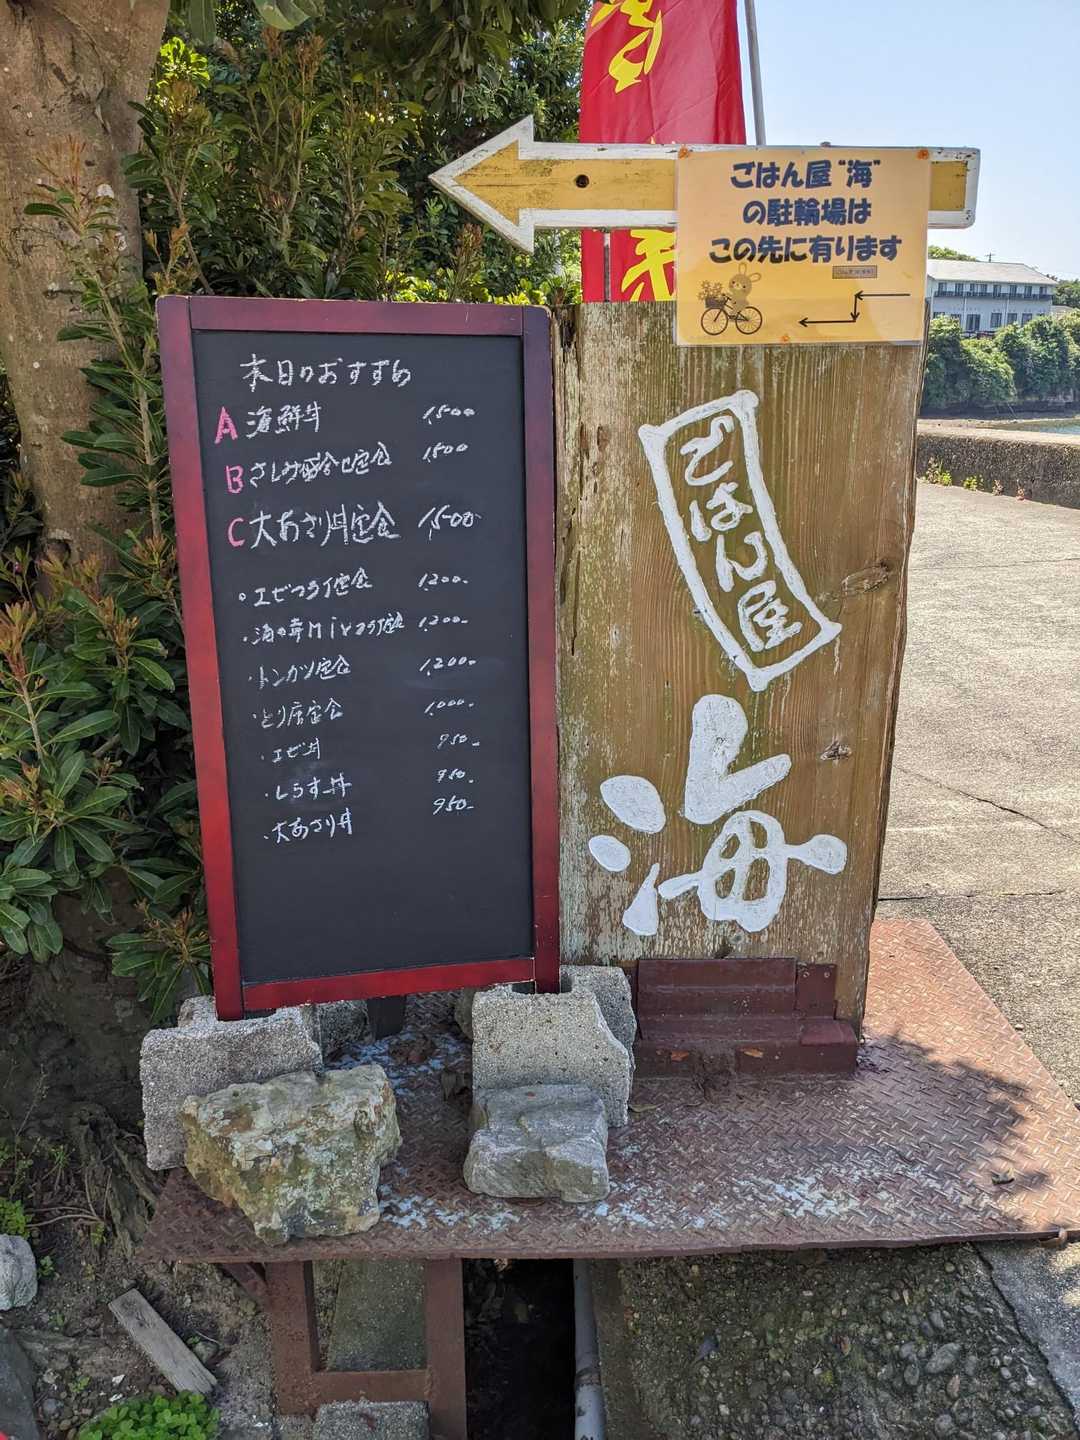 ごはん屋"海"
の駐輪場は
この先に有ります
本日のおすすめ
A 海鮮丼 1,500
B さしみ盛合せ定食 1,500
C 大あさり丼定食 1,500
・エビフライ定食 1,200-
・海の幸Mixフライ定食 1,200-
・トンカツ定食 1,200-
・とり唐定食 1,000-
・エビ丼 950-
・しらす丼 950-
・大あさり丼 950-
ごはん屋
海